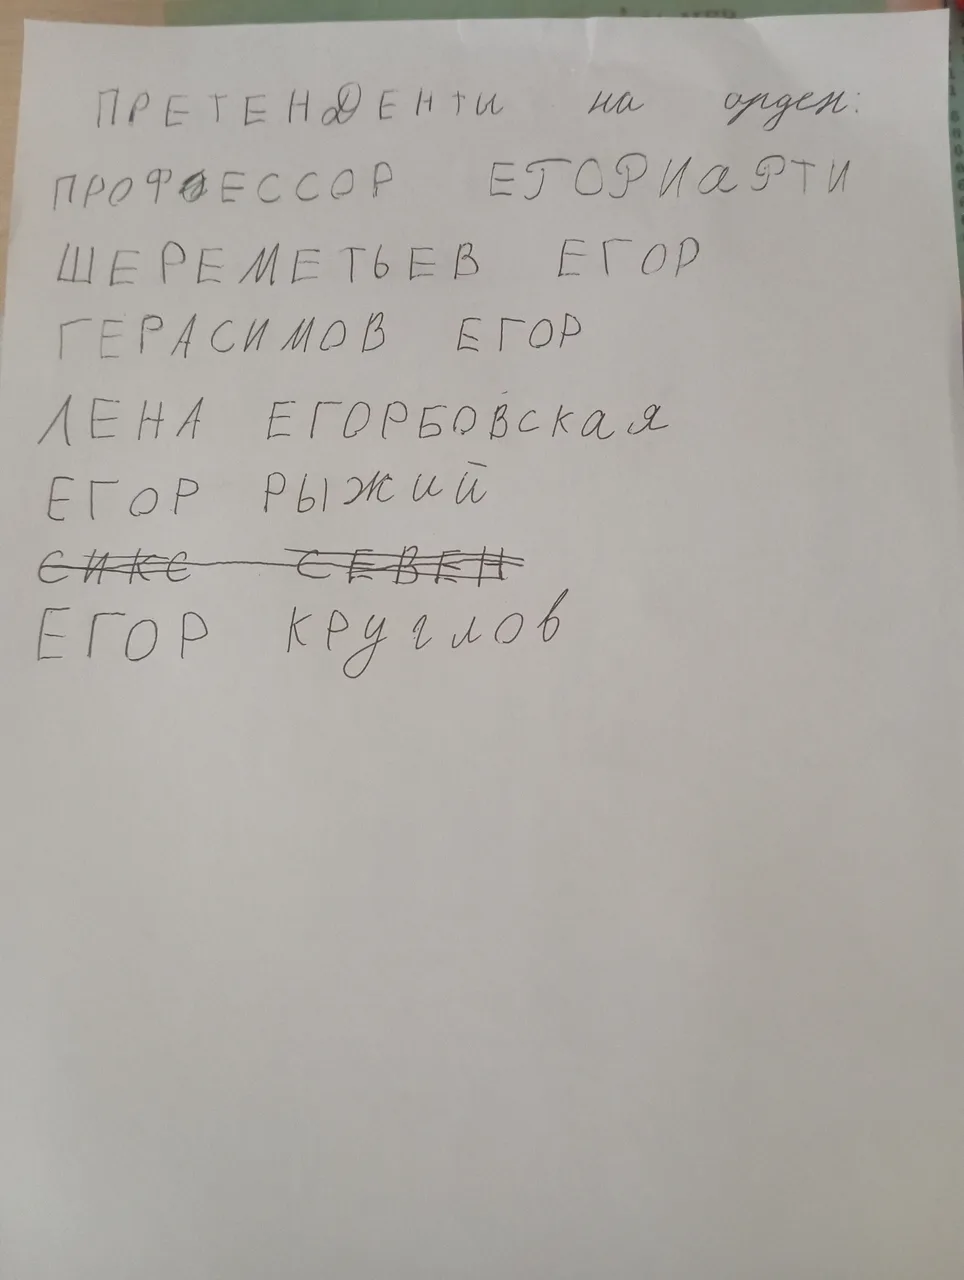 ПРЕТЕНДЕНТИ на орден:
ПРОФЕССОР ЕГОРИаРТИ
ШЕРЕМЕТЬЕВ ЕГОР
ГЕРАСИМОВ ЕГОР
ЛЕНА ЕГОРБОВская
ЕГОР РЫЖИЙ
СИКС СЕВЕН
ЕГОР КРУГЛОВ